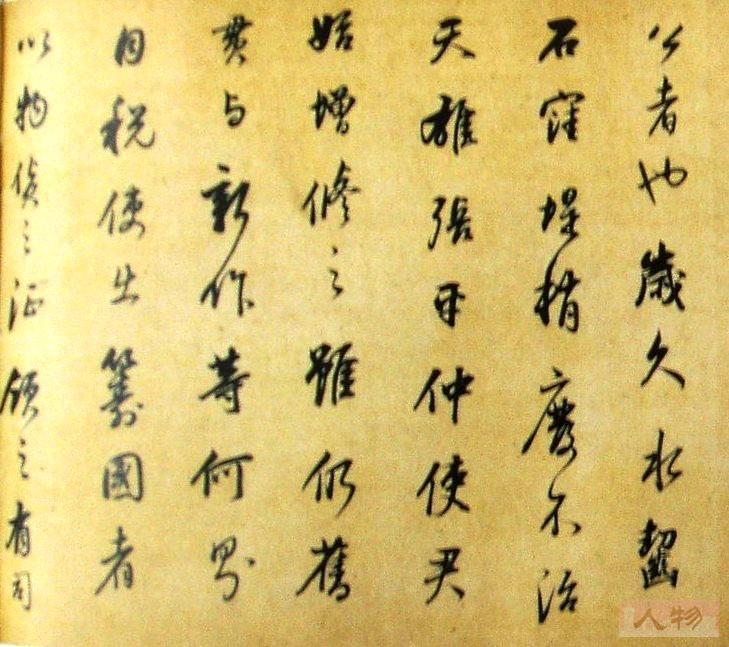 公者也歲久水齧
石窪堤稍廢不治
天雄張平仲使尹
始增修之雖仍舊
貫与新作等何異
自税使出籌國者
以物貨之征領之有司
人物